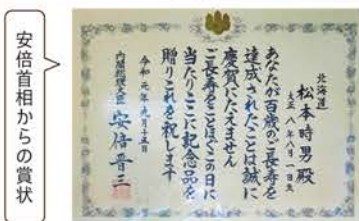 安倍首相からの賞状
北海道
松本時男殿
大正八年八月一日生
あなたが百歳のご長寿を
達成されたことは誠に
慶賀にたえません
ご長寿をことほぐこの日に
当たりここに記念品を
贈りこれを祝します
令和元年九月十五日
内閣総理大臣 安倍晋三